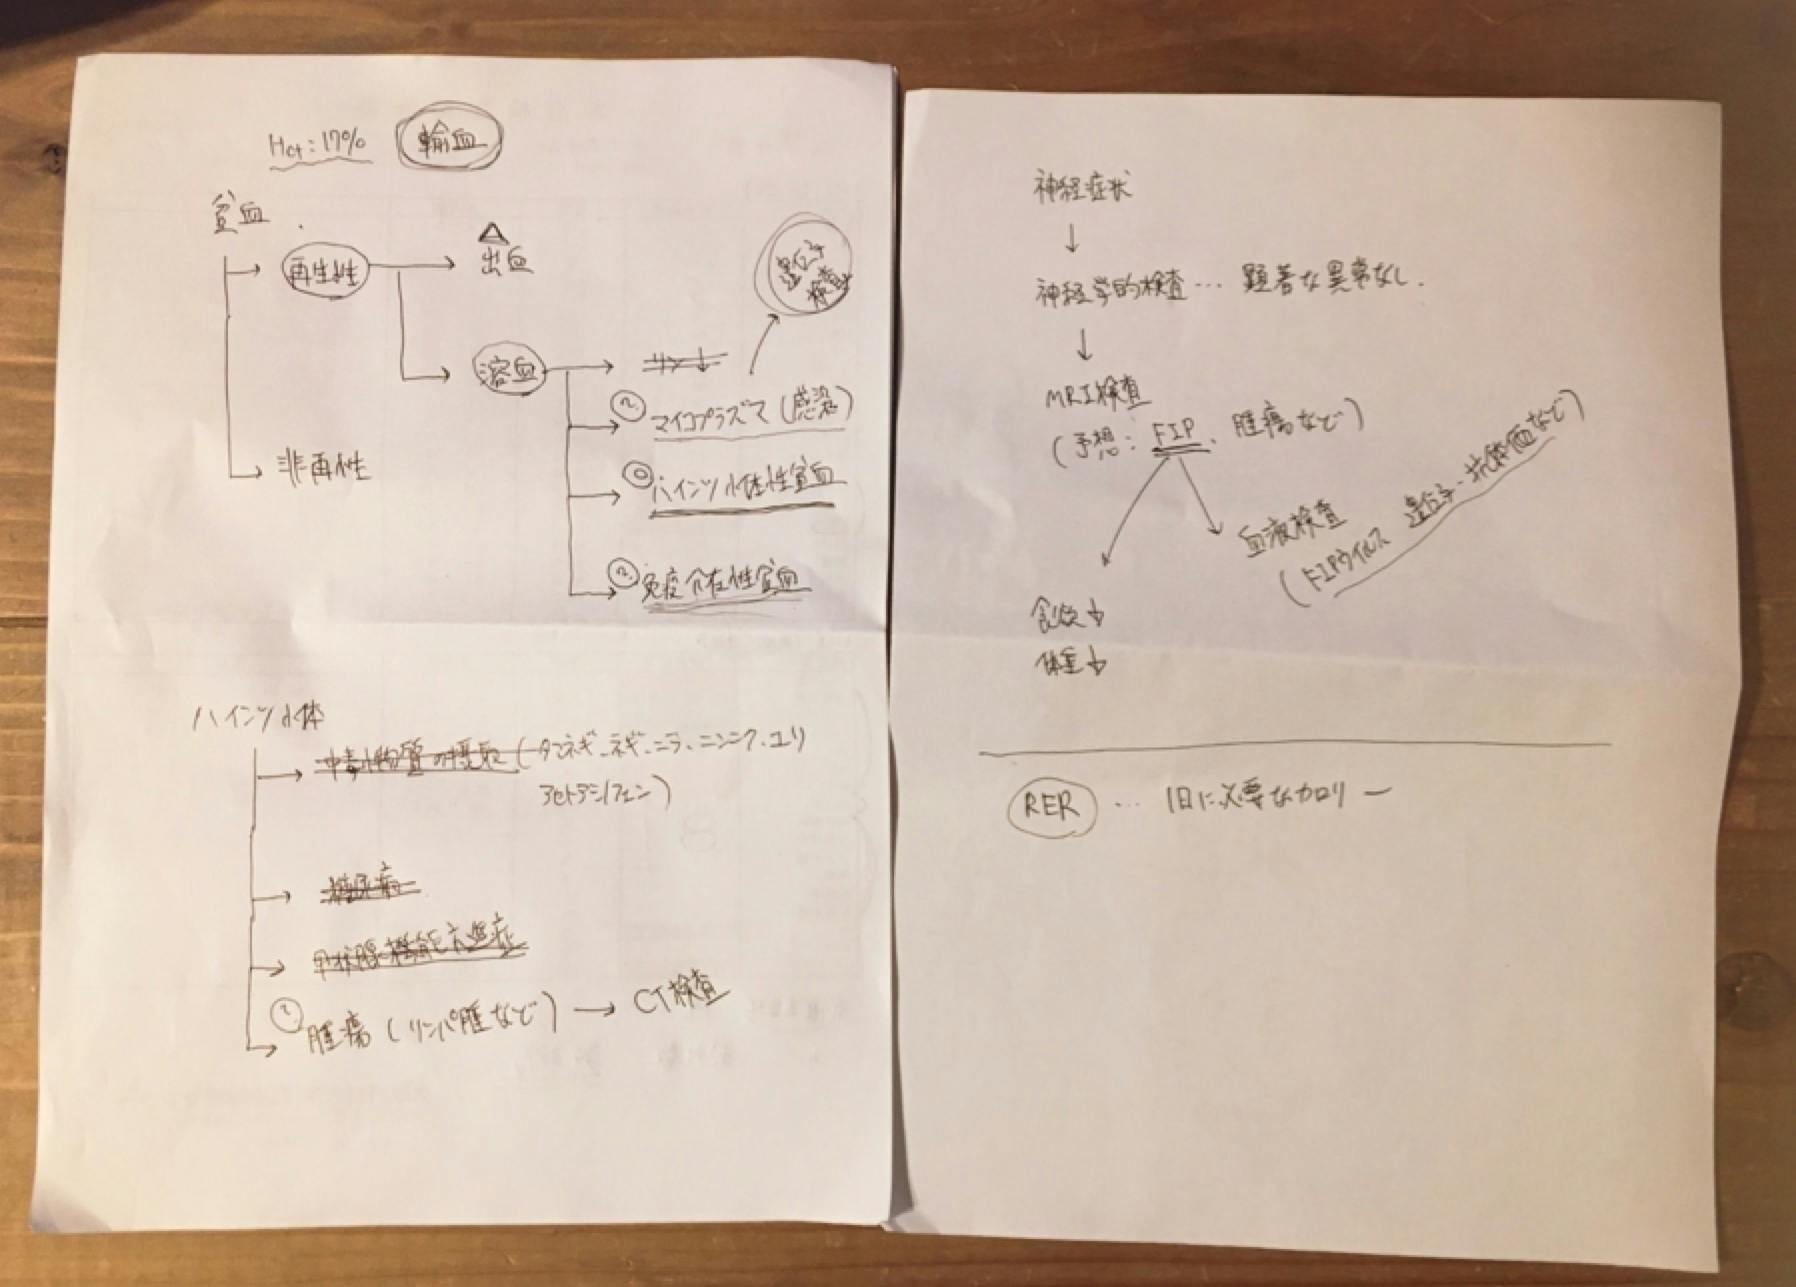 Hct:17%
輸血
貧血
再生性
△
出血
遺伝子
検査
溶血
リン↓
?
マイコプラズマ(感染)
◎
ハインツ小体性貧血
?
免疫介在性貧血
非再性
ハインツ小体
中毒性物質の摂取(タマネギ、ネギ、ニラ、ニンニク、ユリ
アセトアミノフェン)
糖尿病
甲状腺機能亢進症
?
腫瘍(リンパ腫など)→CT検査
神経症状
↓
神経学的検査… 顕著な異常なし.
↓
MRI検査
(予想:FIP、腫瘍など)
血液検査
(FIPウイルス 遺伝子・抗体価など)
食欲↓
体重↓
RER … 1日に必要なカロリー